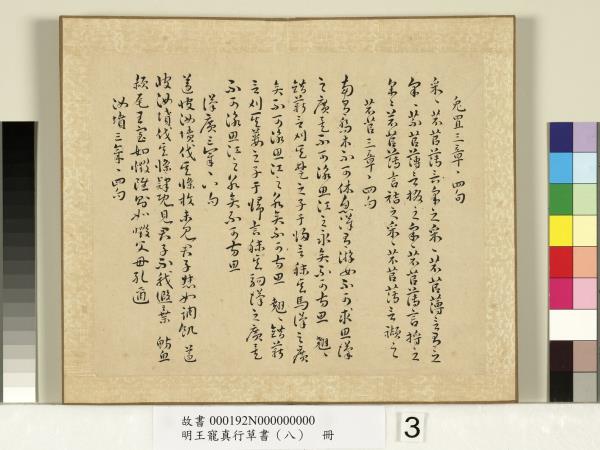 兔罝三章、四句
采、芣苢薄言采之采、芣苢薄言有之
采、芣苢薄言掇之采、芣苢薄言捋之
采、芣苢薄言袺之采、芣苢薄言襭之
芣苢三章、四句
南有喬木不可休息漢有游女不可求思漢
之廣矣不可泳思江之永矣不可方思翹、
錯薪言刈其楚之子于歸言秣其馬漢之廣
矣不可泳思江之永矣不可方思翹、錯薪
言刈其蔞之子于歸言秣其駒漢之廣矣
不可泳思江之永矣不可方思
漢廣三章、八句
遵彼汝墳伐其條枚未見君子惄如調飢遵
彼汝墳伐其條肄既見君子不我遐棄魴魚
赬尾王室如燬雖則如燬父母孔邇
汝墳三章、四句
故書 000192N000000000
明王寵真行草書（八） 冊
3